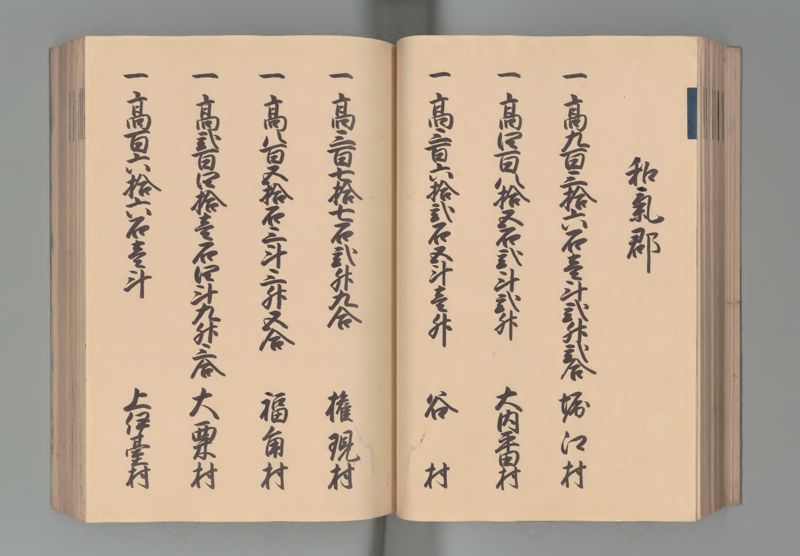 和氣郡
一 高九百三拾六石壱斗弐升弐合 堀江村
一 高四百八拾五石弐斗弐升 大内平田村
一 高三百六拾弐石五斗壱升 谷村
一 高三百七拾七石弐升九合 権現村
一 高八百五拾石三斗三升五合 福角村
一 高弐百四拾壱石四斗九升三合 大栗村
一 高百六拾六石壱斗 上伊臺村